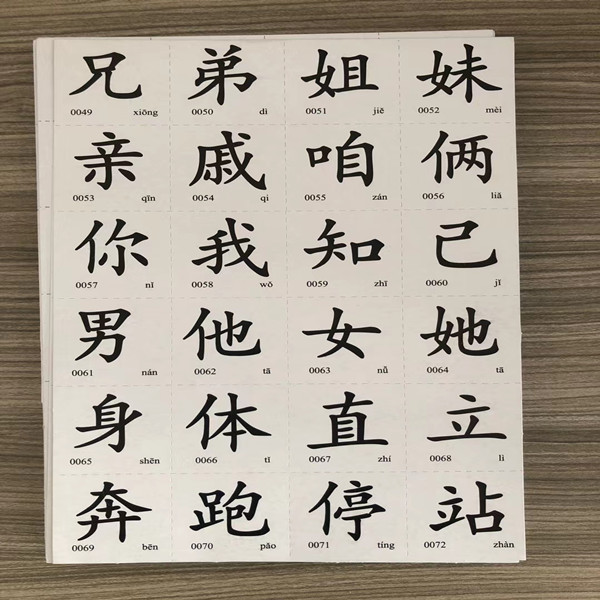 兄 弟 姐 妹
0049 xiōng 0050 dì 0051 jiě 0052 mèi
亲 戚 咱 俩
0053 qīn 0054 qi 0055 zán 0056 liǎ
你 我 知 己
0057 nǐ 0058 wǒ 0059 zhī 0060 jǐ
男 他 女 她
0061 nán 0062 tā 0063 nǚ 0064 tā
身 体 直 立
0065 shēn 0066 tǐ 0067 zhí 0068 lì
奔 跑 停 站
0069 bēn 0070 pǎo 0071 tíng 0072 zhàn